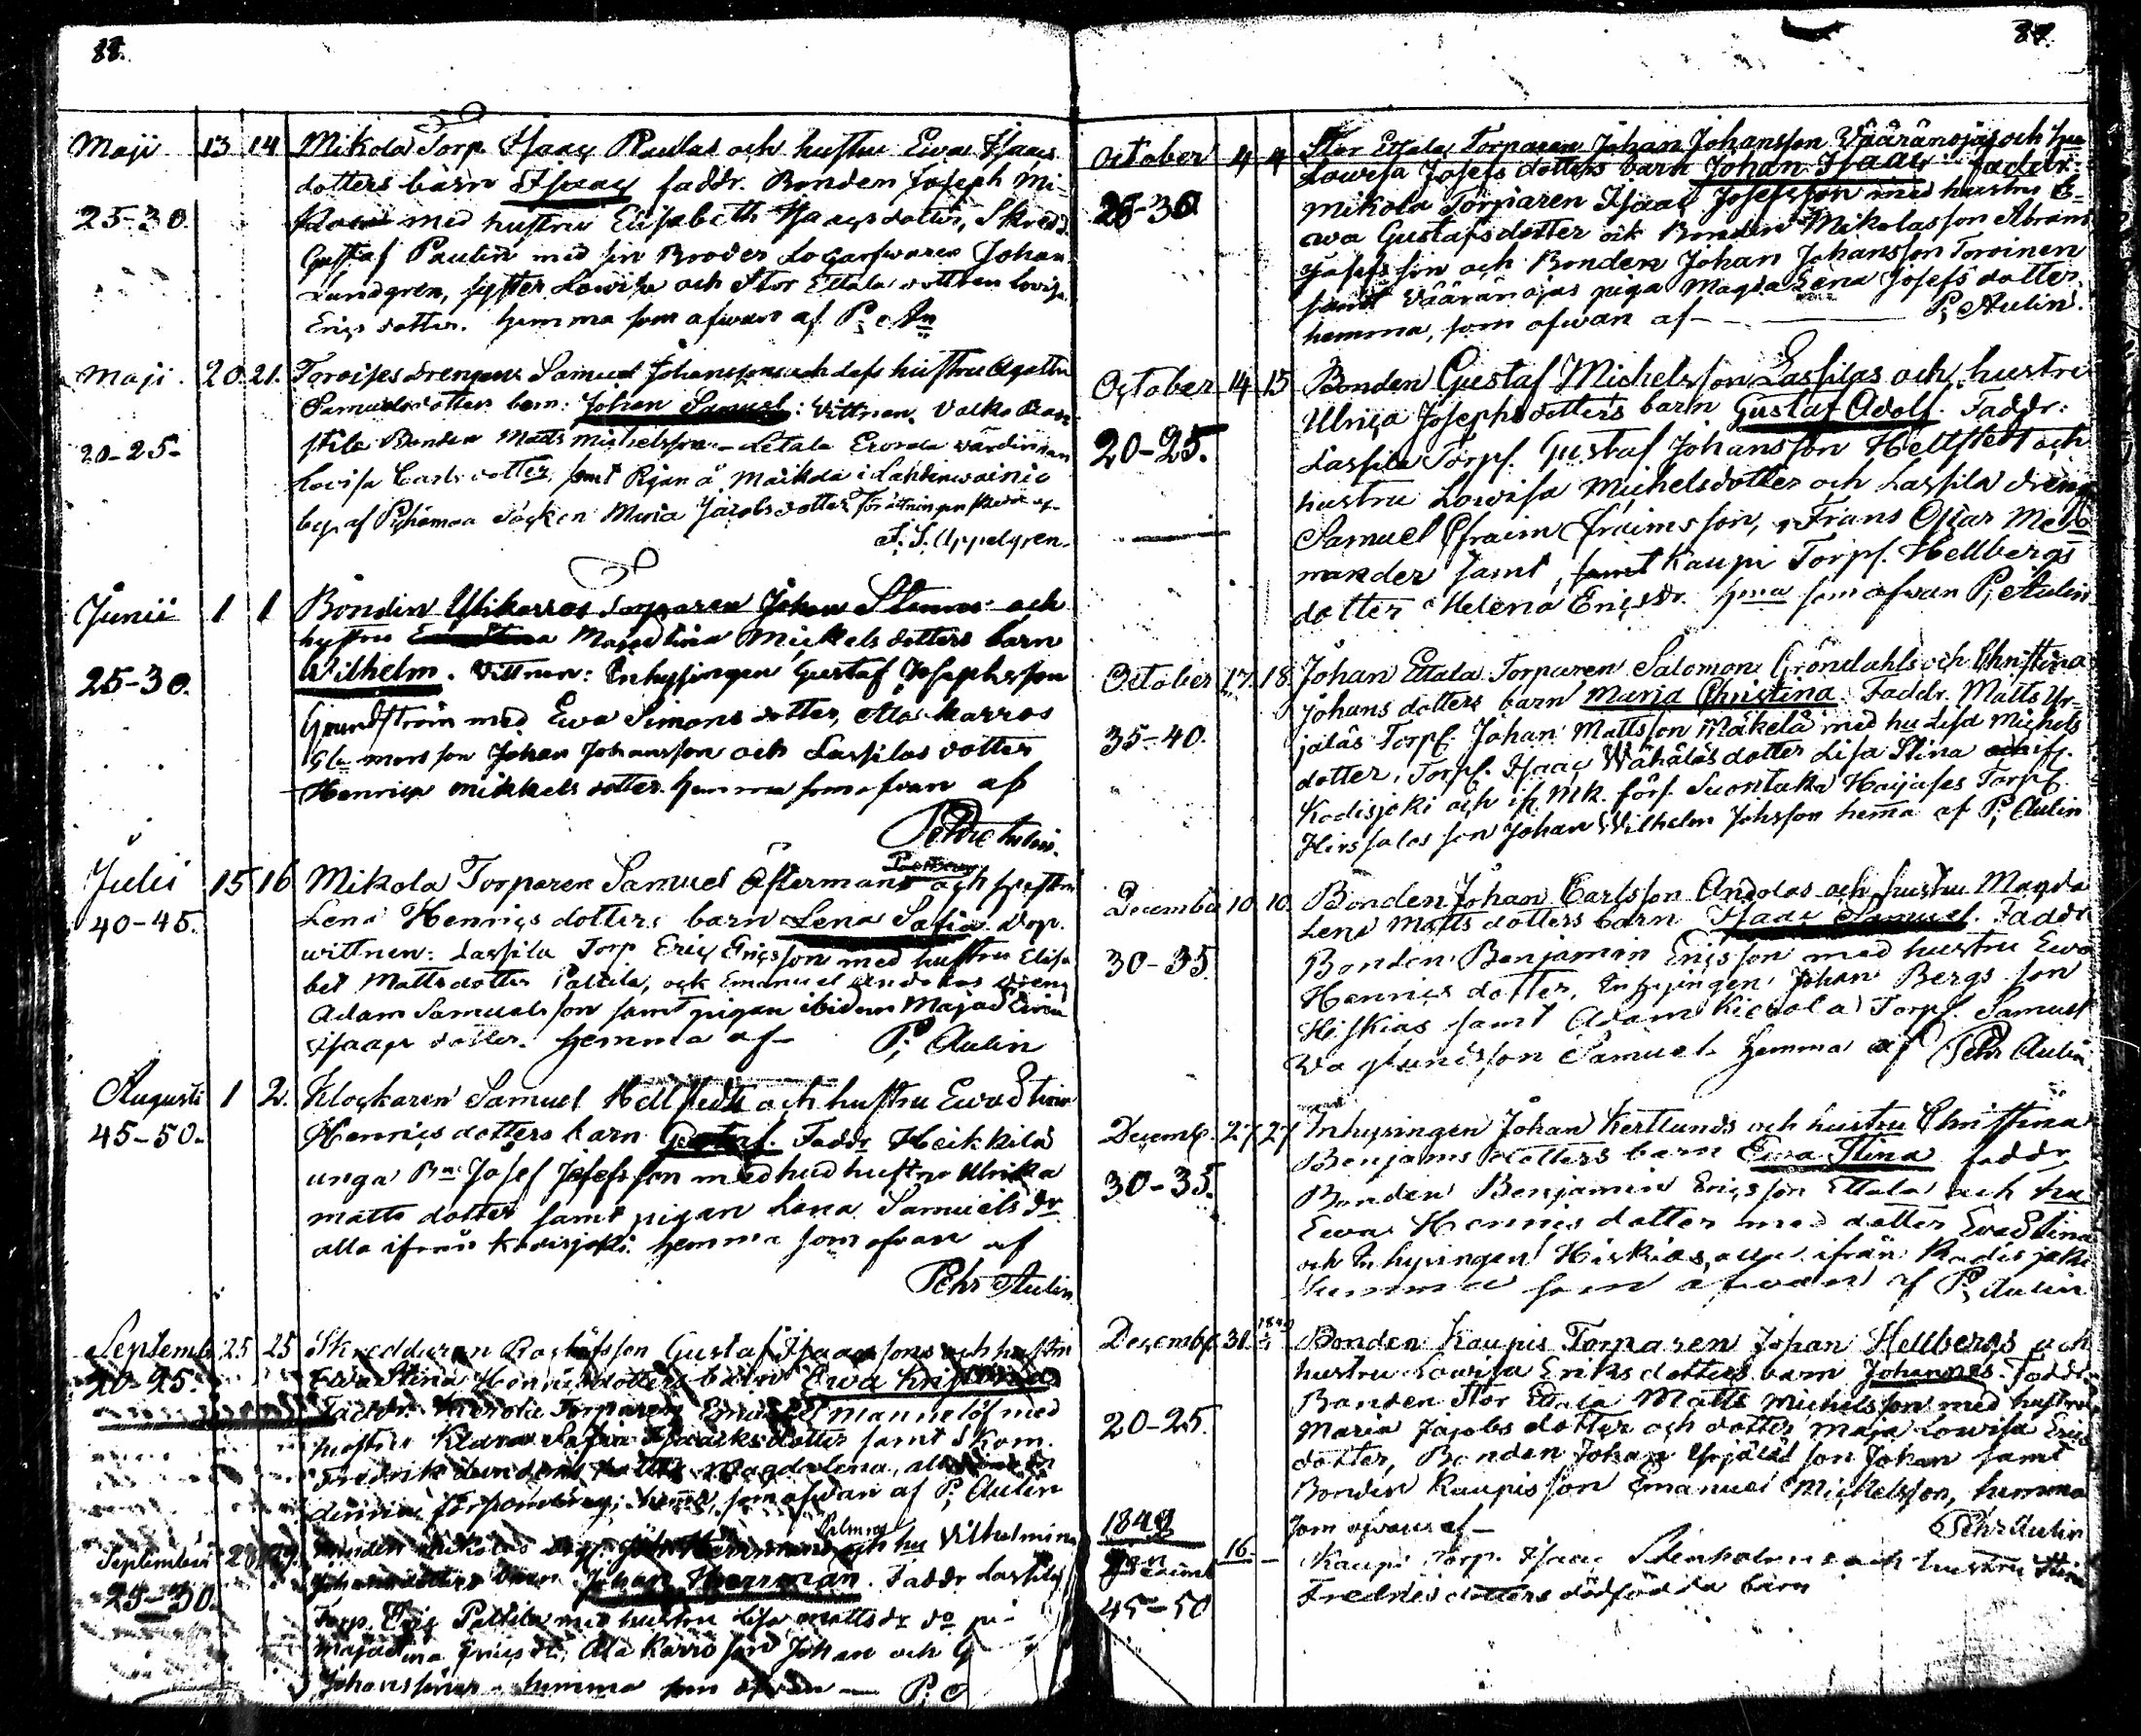 88.
Maji 13 14 Mikola Torp. Isaac Paulas och hustru Ewa Isaacs
dotters barn Isaac faddr. Bonden Joseph Mi-
25-30. kola med hustru Elisabeth Isaacsdotter, Skrädd.
Gustaf Paulin med sin Broder Johan
Lundgren, syster Lowisa och Stor Ettala dottren Lovisa
Erics dotter. hemma som ofwan af P. Au
Maji 20. 21. Torvises drengens Samuel Johanssons och dess hustru Agatha
Samuelsdotters barn: Johan Samuel: Vittnen. Valko
20-25- Bonden Matts Michelsson - Letala wärdinnan
Lovisa Carlsdotter samt Pigan å Maikola i
by af Pyhämaa Socken Maria Jacobsdotter Förrättningen skedde af
F. S. Appelgren.
Junii 1 1 Bonden Ylikarros Torparen Johan Stenros och
hustru Maja Stina Mickels dotters barn
25-30. Wilhelm. Vittnen: Inhysingen Gustaf Josephsson
Grundström med Ewa Simons dotter, Ala karros
son Johan Johansson och Lassilas dotter
Henrica Mikkels dotter. hemma som ofvan af
Pehr Aulin.
Julii 15 16 Mikola Torparen Samuel Östermans och hustru
40-45. Lena Henrics dotters barn Lena Safia. Dop.
wittnen: Lassila Torp. Eric Ericsson med hustru Elisa
bet Mattsdotter Paltila, och Emanuel Andolas dreng
Adam Samuelsson samt pigan ibidem Maja Stina
Isaacs dotter. hemma af - P; Aulin
Augusti 1 2. Klockaren Samuel Hellstedts och hustru Ewa Stina
45-50. Henrics dotters barn Gustaf. Faddr Heikkilä
unga Bn Josef Josefsson med hustru Ulrika
matts dotter samt pigan Lena Samuels dr
alla ifrån Kodisjoki. hemma som ofvan af
Pehr Aulin
Septemb. 25 25 Skreddaren Gustaf Isaacssons och hustru
20-25. Ewa Stina Henricsdotters barn Ewa Kristina
Faddr. Kierola Torparen Mannelöf med
hustru Klara Safia Isaacks dotter samt Skom.
Fredrik Magdalena,
hemma, som ofvan af P; Aulin
September 28 29. Bonden Mikolas Palmros och hu Vilhelmina
25-30. Johansdotters barn Johan Herrman. Faddr Lassila
Torp. Eric Paltila med hustru Lisa mattsdr do pi-
Maja Stina Ericsdr, Ala Karro son Johan och G
Johanssöner - hemma som ofvan - P;
89.
October 4 4 Stor Ettala Torparen Johan Johansson Vääränojas och hu
Lowisa Josefs dotters barn Johan Isaac faddr:
25-30 Mikola Torparen Isaac Josefsson med hustru E-
wa Gustafsdotter och Bonden Mikolas son Abram
Josefsson och Bonden Johan Johansson Toroinen
samt Vääränojas piga Magda Lena Josefs dotter
hemma, som ofwan af - P; Aulin.
October 14 15 Bonden Gustaf Michelsson Lassilas och hustru
Ulrica Josephsdotters barn Gustaf Adolf. Faddr:
20-25. Lassila Torpf. Gustaf Johansson Hellstedt och
hustru Lowisa Michelsdotter och Lassila dreng
Samuel Efraim Efraimsson, Frans Oscar Me-
nander samt, samt Kaupi Torpf. Hellbergs
dotter Helena Ericsdr. hma som ofwan P; Aulin
October 17. 18. Johan Ettala Torparen Salomon Gröndahls och Christina
Johans dotters barn Maria Christina. Faddr. Matts Yr-
35-40. jäläs Torpf. Johan Mattsson Mäkelä med hu Lisa Michels
dotter, Torpf. Isaac Wähäläs dotter Lisa Stina
Kodisjoki och Suontaka Torpf.
Hirssalos son Johan Wilhelm Johsson hema af P; Aulin
December 10 10. Bonden Johan Carlsson Andolas och hustru Magda
Lena Matts dotters barn Isaac Samuel. Faddr
30-35 Bonden Benjamin Ericsson med hustru Ewa
Henrics dotter, Inhysingen Johan Bergs son
Hiskias samt Adam Kierola Torpf. Samuel
Waglunds son Samuel. hemma af Pehr Aulin
Decemb. 27 27 Inhysingen Johan Kertlunds och hustru Christina
Benjamsdotters barn Ewa Stina faddr
30-35. Bonden Benjamin Ericsson Ettala och hu
Ewa Henrics dotter med dotter Ewa Stina
och Inhysingen Hiskias, alla ifrån Kodisjoki
hemma som ofwan af P; Aulin
Decemb. 31. 1849 Bonden Kaupis Torparen Johan Hellbergs och
hustru Lowisa Eriks dotters barn Johannes. Faddr
Bonden Stor Ettala Matts Michelsson med hustru
20-25. Maria Jacobs dotter och dotter Maja Lowisa Erics
dotter, Bonden Johan Yrjäläs son Johan samt
Bonden Kaupis son Emanuel Mickelsson, hemma
1849 som ofvan af - Pehr Aulin
16. Kaupi Torp. Isaac Stenholms och hustru Stina
45-50 Fredrics dotters dödfödda barn